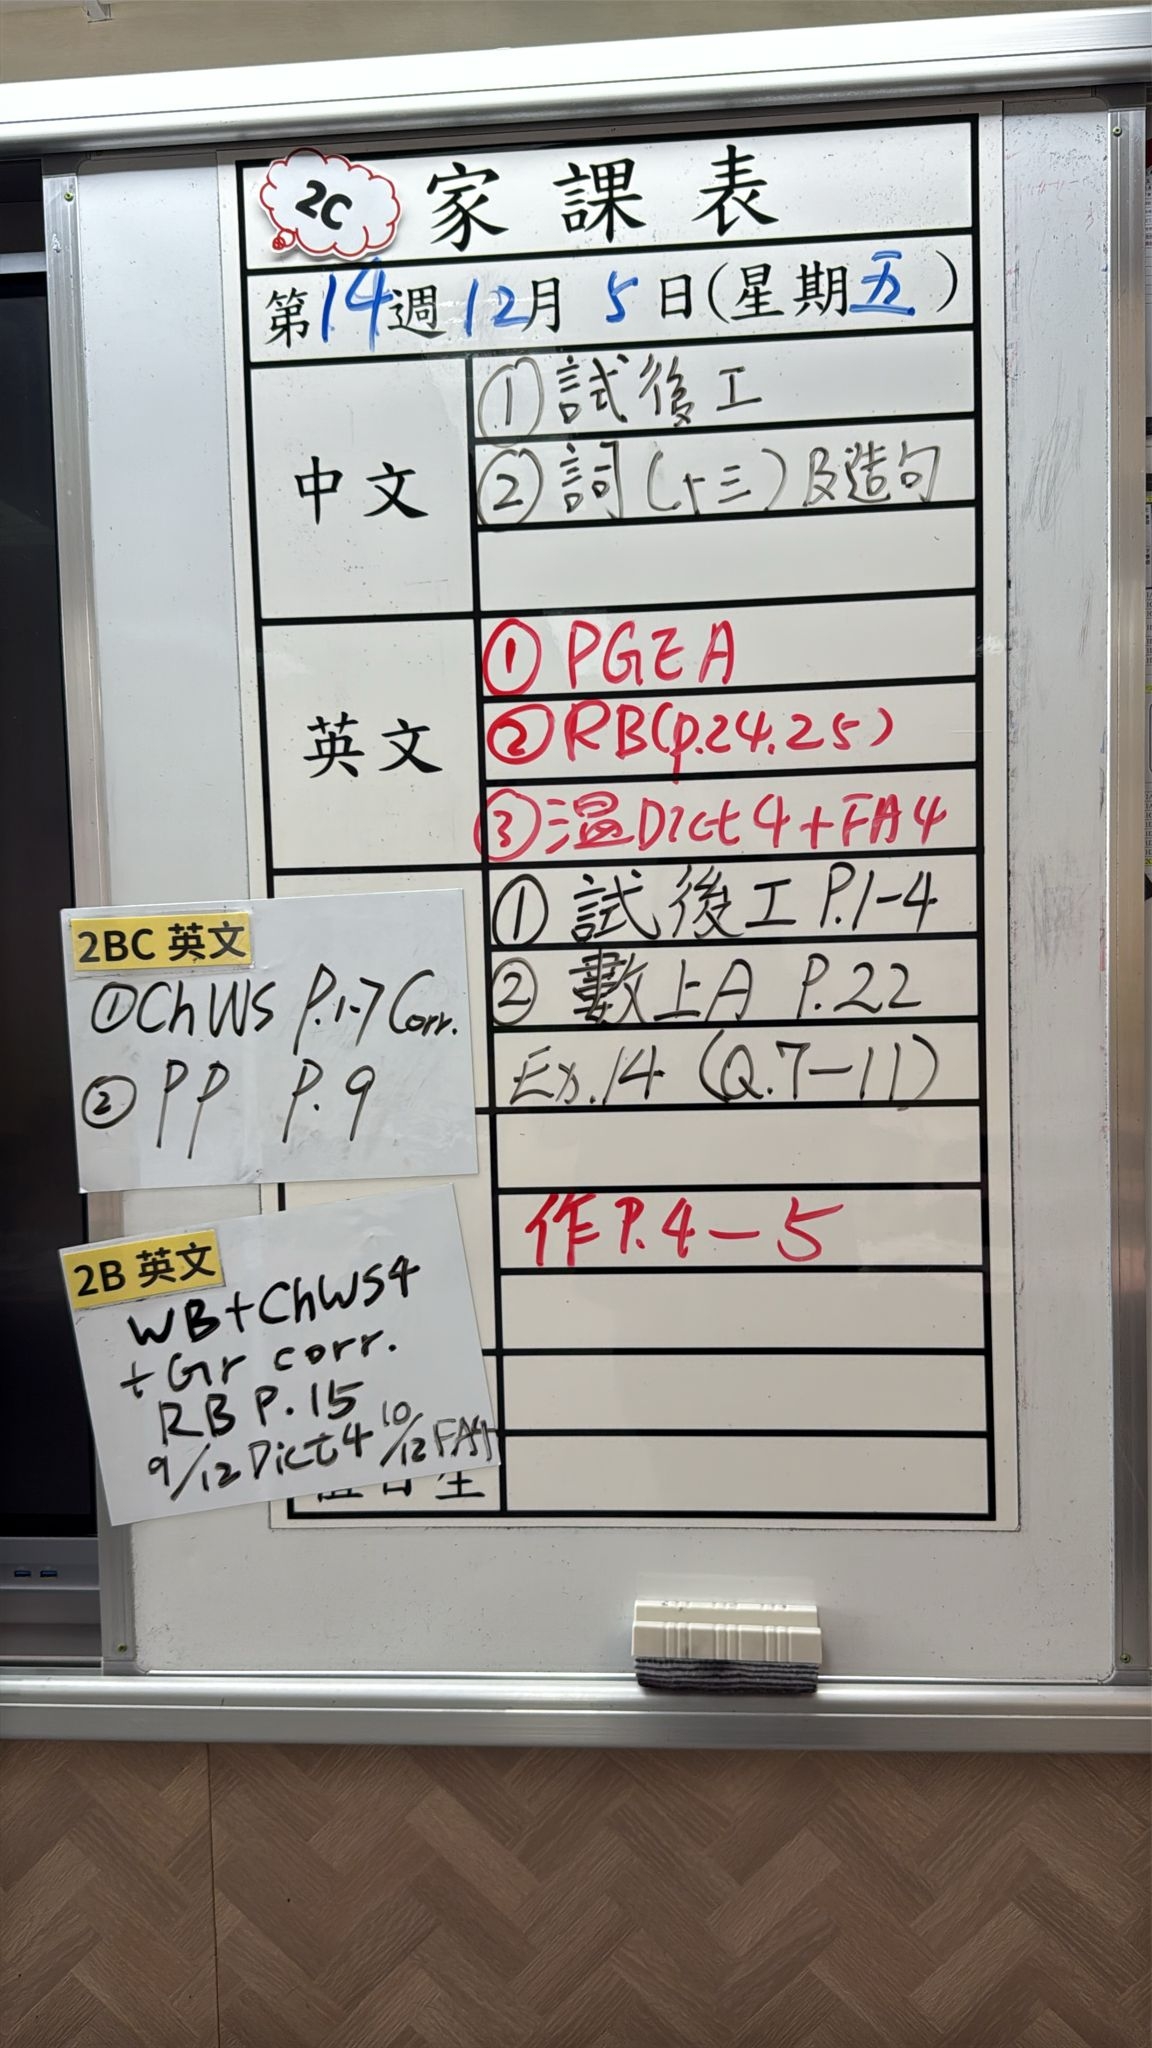 2C 家課表
第14週12月5日(星期五)
中文
① 試後工
② 詞(十三)及造句
英文
① PGEA
② RB(p.24.25)
③ 溫Dict 4 + FA4
① 試後工 P.1-4
② 數上A P.22
Ex.14 (Q.7-11)
作 P.4-5
2BC 英文
① ChWS P.1-7 Corr.
② PP P.9
2B 英文
WB+ChWS4
+Gr corr.
RB P.15
9/12 Dict 4 10/12 FA4